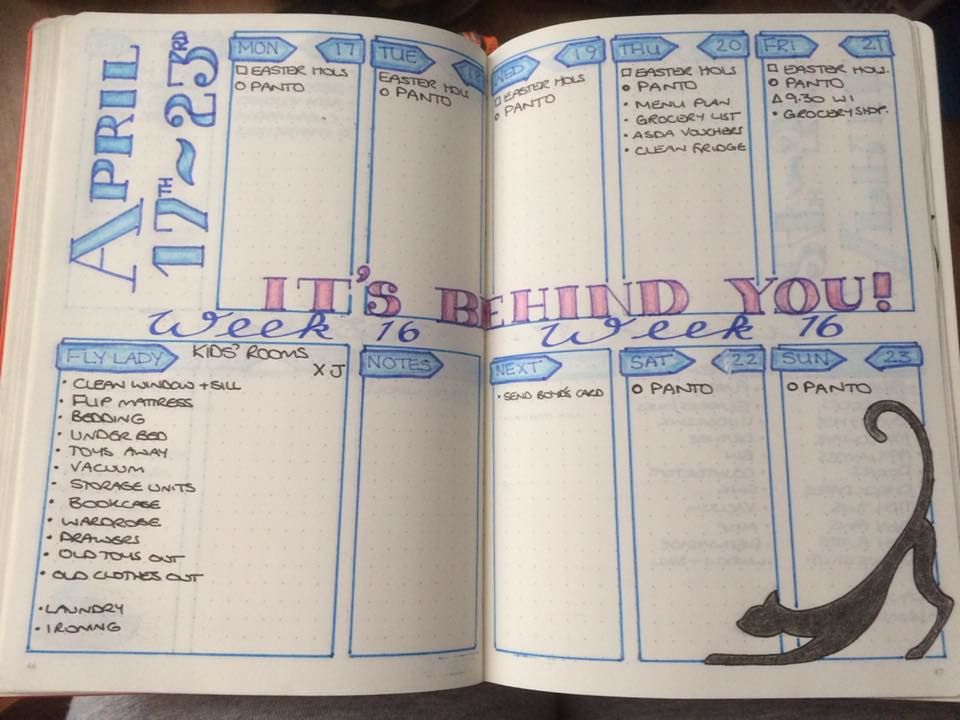 APRIL
17TH ~ 23RD
MON 17
□ EASTER HOLS
○ PANTO
TUE 18
EASTER HOLS
○ PANTO
WED 19
□ EASTER HOLS
○ PANTO
THU 20
□ EASTER HOLS
○ PANTO
• MENU PLAN
• GROCERY LIST
• ASDA VOUCHERS
• CLEAN FRIDGE
FRI 21
□ EASTER HOL.
○ PANTO
△ 9.30 WI
• GROCERY SHOP.
IT'S BEHIND YOU!
Week 16 Week 16
FLY LADY KIDS' ROOMS
X J
• CLEAN WINDOW + SILL
• FLIP MATTRESS
• BEDDING
• UNDER BED
• TOYS AWAY
• VACUUM
• STORAGE UNITS
• BOOKCASE
• WARDROBE
• DRAWERS
• OLD TOYS OUT
• OLD CLOTHES OUT
• LAUNDRY
• IRONING
NOTES
NEXT
• SEND BOYD'S CARD
SAT 22
○ PANTO
SUN 23
○ PANTO
46
47